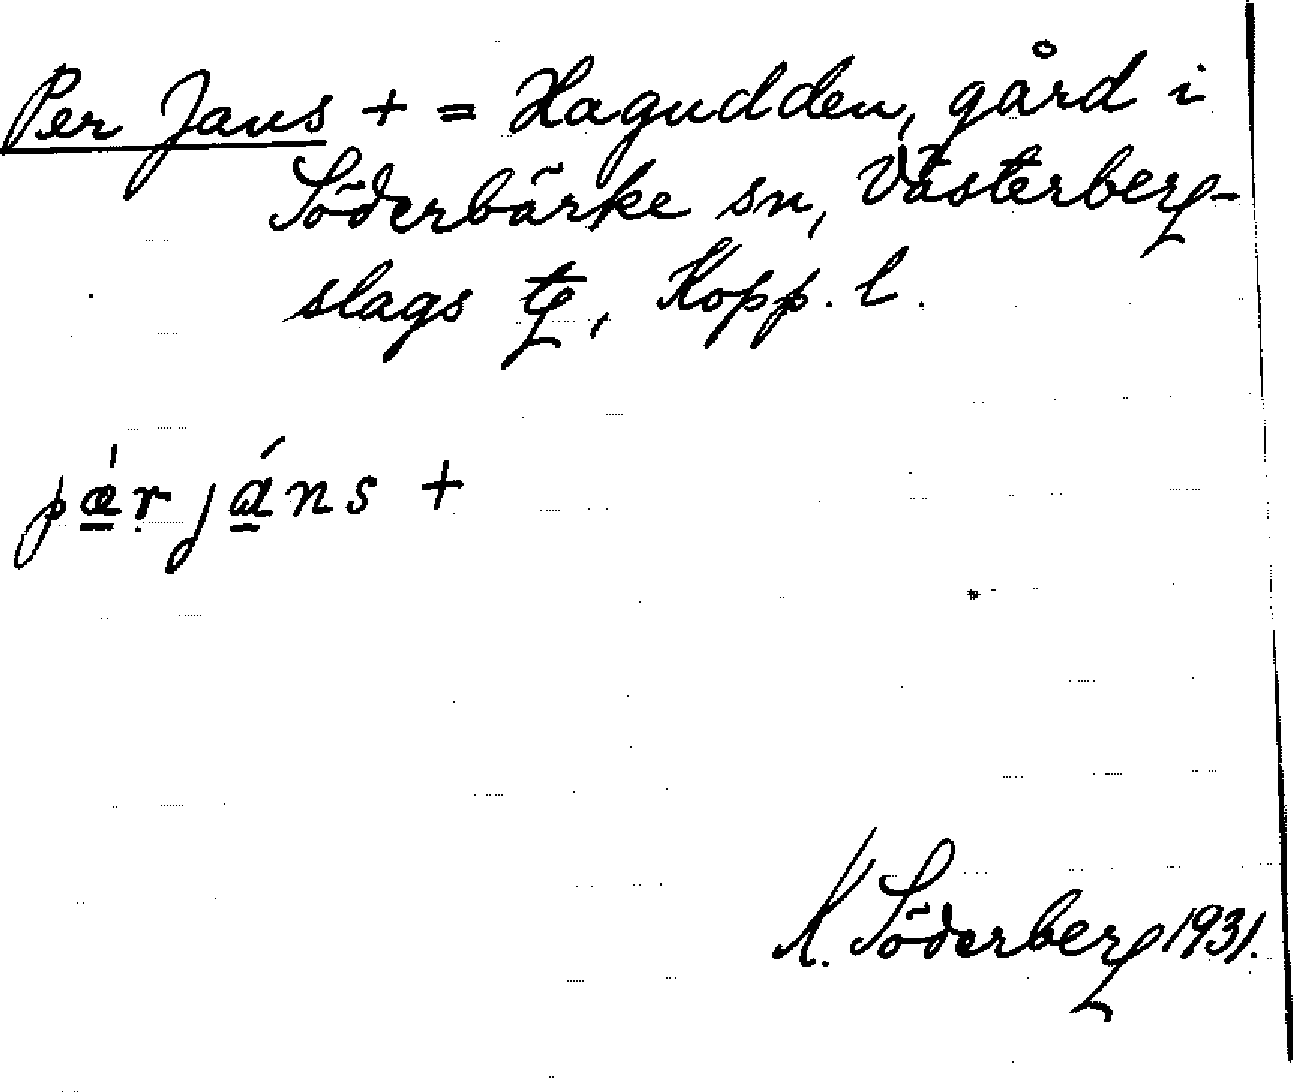 Per Jans + = Hagudden, gård i
Söderbärke sn, Västerberg-
slags tg, Kopp. l.
pǽ̠rjá̠ns +
K. Söderberg 1931.